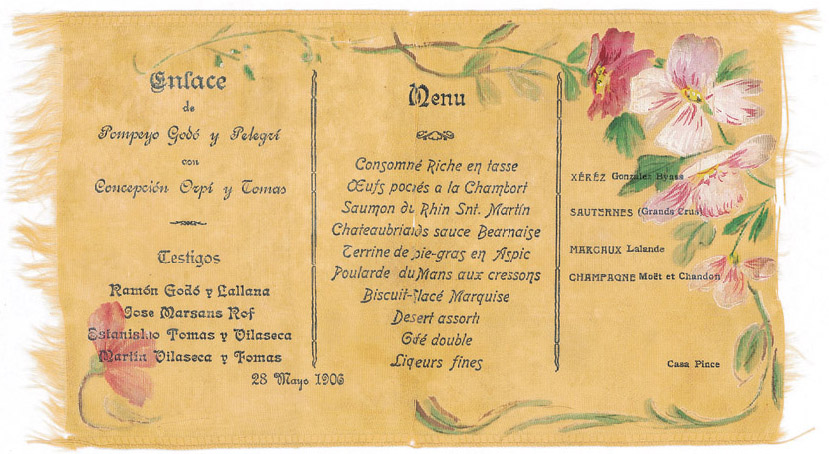 Enlace
de
Pompeyo Godó y Pelegrí
con
Concepción Orpí y Tomas
Testigos
Ramón Godó y Lallana
Jose Marsans Rof
Estanislao Tomas y Vilaseca
Martín Vilaseca y Tomas
23 Mayo 1906
Menu
Consomné Riche en tasse
Œufs pochés a la Chambort
Saumon du Rhin Snt. Martin
Chateaubriands sauce Bearnaise
Terrine de foie-gras en Aspic
Poularde du Mans aux cressons
Biscuit-glacé Marquise
Desert assorti
Café double
Liqeurs fines
XÉRÉZ Gonzalez Byass
SAUTERNES (Grands Crus)
MARGAUX Lalande
CHAMPAGNE Moët et Chandon
Casa Pince